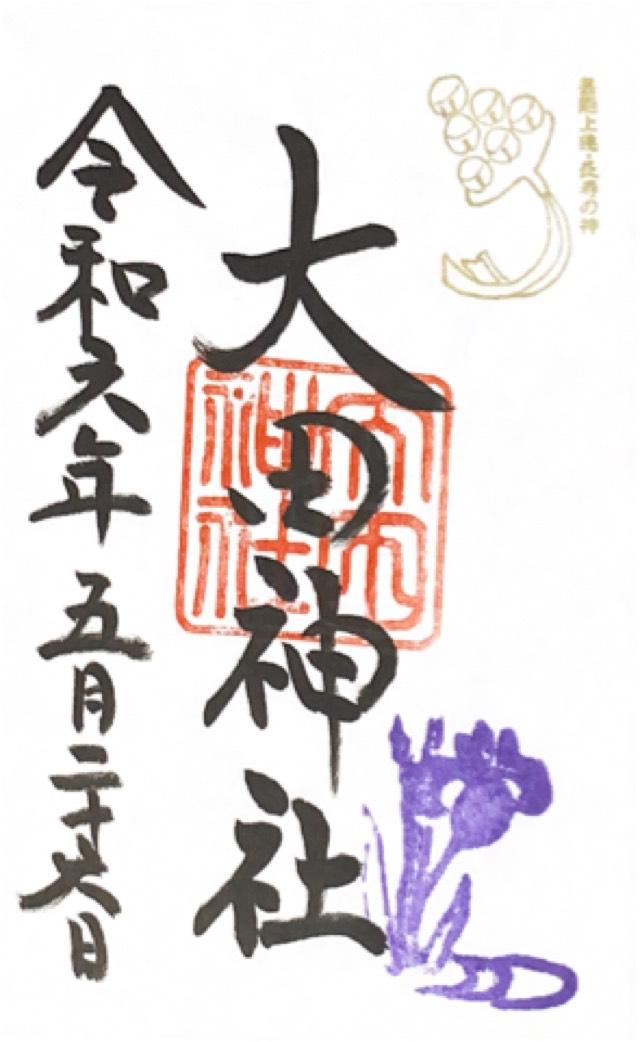 藝能上達・長寿の神
大田神社
大田
神社
令和六年五月二十六日